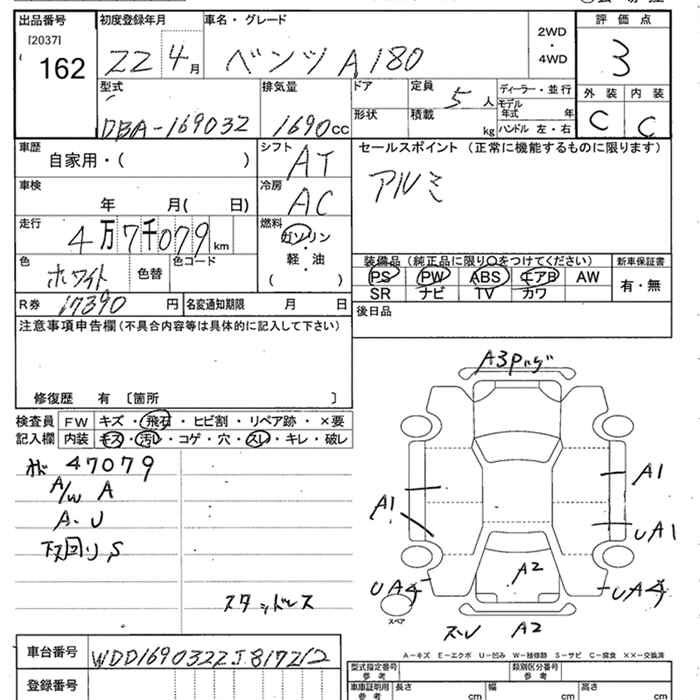 出品番号 初度登録年月 車名・グレード 2WD 評価点
[2037] 4WD
162 22 4月 ベンツ A180 3
型式 排気量 ドア 定員 ディーラー・並行 外装 内装
5人 モデル年式 年
DBA-169032 1690cc 形状 積載 kg ハンドル 左・右 C C
車歴 自家用・( ) シフト AT セールスポイント (正常に機能するものに限ります)
車検 年 月( 日) 冷房 AC アルミ
走行 4万7千079km 燃料 ガソリン
軽・油
( )
色 ホワイト 色替 色コード
装備品 (純正品に限り○をつけてください) 新車保証書
PS PW ABS エアB AW 有・無
SR ナビ TV カワ
R券 17390円 名変通知期限 月 日 後日品
注意事項申告欄(不具合内容等は具体的に記入して下さい)
修復歴 有 〔箇所 〕
検査員 FW キズ・飛石・ヒビ割・リペア跡・×要
記入欄 内装 キズ・汚レ・コゲ・穴・スレ・キレ・破レ
47079
A/W A
A-U
下回りS
スタッドレス
A3Pバグ
A1
A1
UA1
A2
UA4
UA4
スペア
スレ A2
A-キズ E-エクボ U-凹み W-補修跡 S-サビ C-腐食 ××-交換済
車台番号 WDD1690322J817212
登録番号
型式指定番号 参考 類別区分番号 参考
車庫証明用 参考 長さ cm 幅 cm 高さ cm